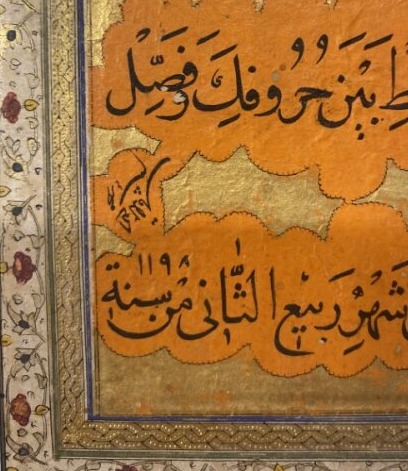 ط بَيْنَ حُرُوفِكَ وَفَصِّلْ
شَهْرِ رَبيع الثَّانى مِنْ سنة ١١٩٨